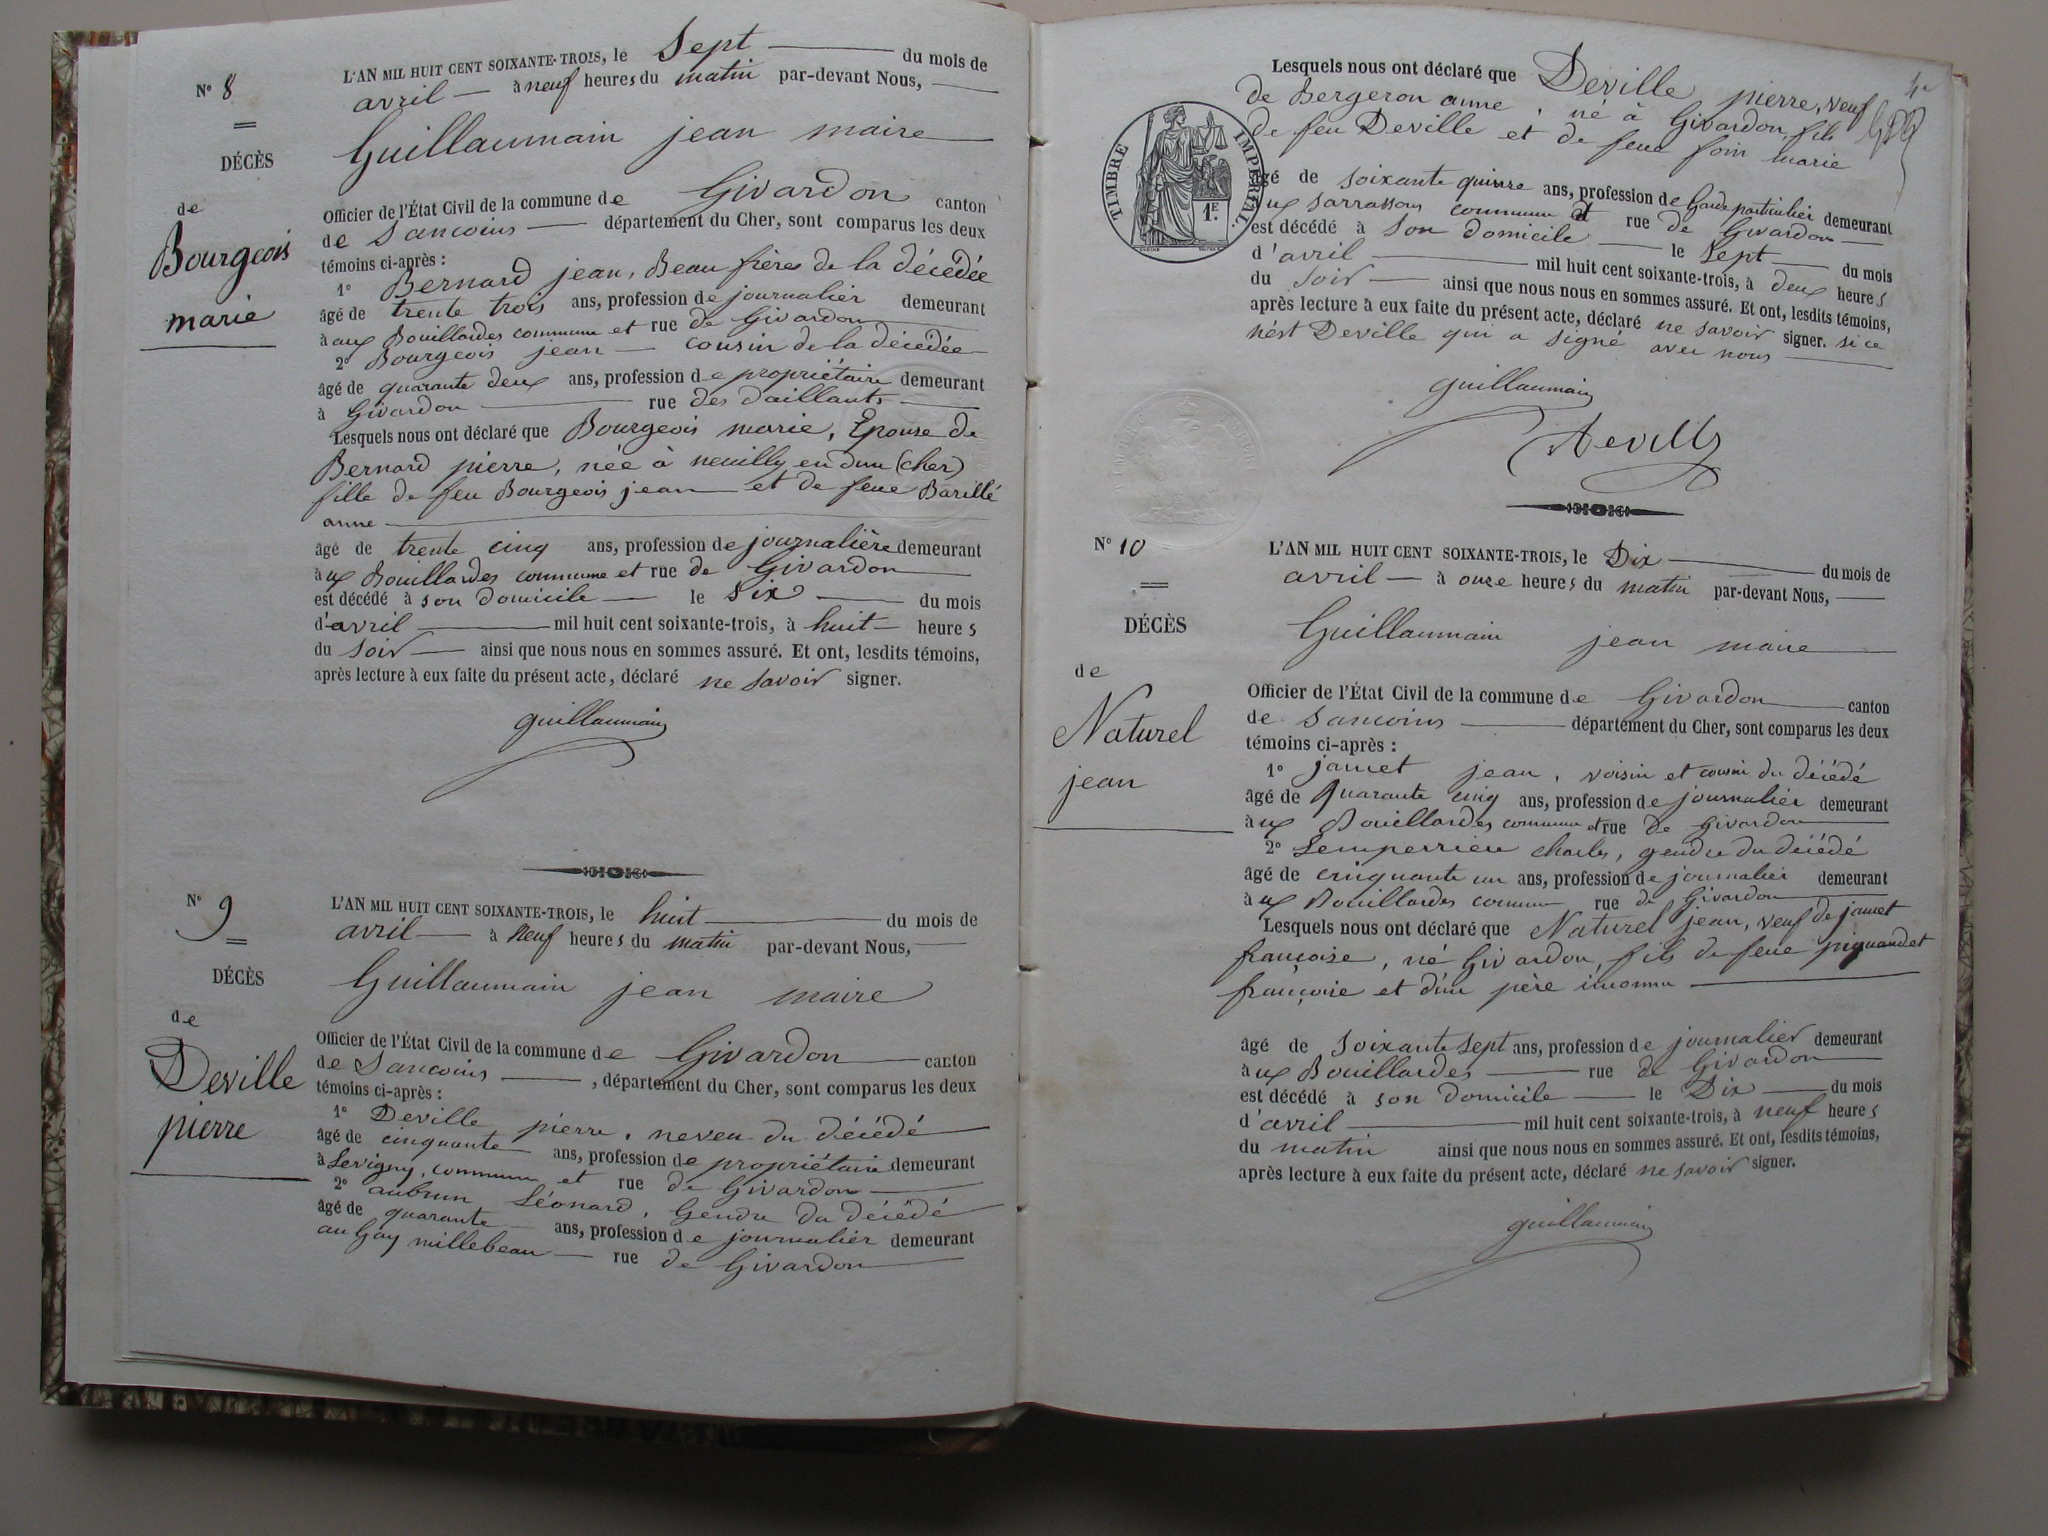 N° 8
DÉCÈS
de
Bourgeois
marie
L'AN MIL HUIT CENT SOIXANTE-TROIS, le Sept du mois de
avril à neuf heures du matin par-devant Nous,
Guillaumain jean maire
Officier de l'État Civil de la commune de Givardon canton
de Sancoins département du Cher, sont comparus les deux
témoins ci-après :
1° Bernard jean, Beau frères de la décédée
âgé de trente trois ans, profession de journalier demeurant
à aux Bouillardes commune et rue de Givardon
2° Bourgeois jean cousin de la décédée
âgé de quarante deux ans, profession de propriétaire demeurant
à Givardon rue des daillants
Lesquels nous ont déclaré que Bourgeois marie, Epouse de
Bernard pierre, née à neuilly en dun (cher)
fille de feu Bourgeois jean et de feue Barillé
anne
âgé de trente cinq ans, profession de journalière demeurant
à ux Bouillardes commune et rue de Givardon
est décédé à son domicile le Six du mois
d'avril mil huit cent soixante-trois, à huit heures
du soir ainsi que nous nous en sommes assuré. Et ont, lesdits témoins,
après lecture à eux faite du présent acte, déclaré ne savoir signer.
guillaumain
N° 9
DÉCÈS
de
Deville
pierre
L'AN MIL HUIT CENT SOIXANTE-TROIS, le huit du mois de
avril à neuf heures du matin par-devant Nous,
Guillaumain jean maire
Officier de l'État Civil de la commune de Givardon canton
de Sancoins , département du Cher, sont comparus les deux
témoins ci-après :
1° Deville pierre, neveu du décédé
âgé de cinquante ans, profession de propriétaire demeurant
à Levigny, commune et rue de Givardon
2° aubrun Léonard, Gendre du décédé
âgé de quarante ans, profession de journalier demeurant
au Gay millebeau rue de Givardon
Lesquels nous ont déclaré que Deville pierre, veuf
de Bergeron anne, né à Givardon, fils
de feu Deville et de feue foin marie
âgé de soixante quinze ans, profession de Garde particulier demeurant
ux Sarrassons commune et rue de Givardon
est décédé à son domicile le Sept du mois
d'avril mil huit cent soixante-trois, à deux heures
du soir ainsi que nous nous en sommes assuré. Et ont, lesdits témoins,
après lecture à eux faite du présent acte, déclaré ne savoir signer. si ce
n'est Deville qui a signé avec nous
guillaumain
Deville
TIMBRE IMPÉRIAL.
1.E
N° 10
DÉCÈS
de
Naturel
jean
L'AN MIL HUIT CENT SOIXANTE-TROIS, le Dix du mois de
avril à onze heures du matin par-devant Nous,
Guillaumain jean maire
Officier de l'État Civil de la commune de Givardon canton
de Sancoins département du Cher, sont comparus les deux
témoins ci-après :
1° jamet jean, voisin et cousin du décédé
âgé de quarante cinq ans, profession de journalier demeurant
à ux Bouillardes commune et rue de Givardon
2° Lemperrieu charles, gendre du décédé
âgé de cinquante un ans, profession de journalier demeurant
à ux Bouillardes commune rue de Givardon
Lesquels nous ont déclaré que Naturel jean, veuf de jamet
françoise, né Givardon, fils de feue piquandet
françoise et d'un père inconnu
âgé de Soixante Sept ans, profession de journalier demeurant
à ux Bouillardes rue de Givardon
est décédé à son domicile le Dix du mois
d'avril mil huit cent soixante-trois, à neuf heures
du matin ainsi que nous nous en sommes assuré. Et ont, lesdits témoins,
après lecture à eux faite du présent acte, déclaré ne savoir signer.
guillaumain